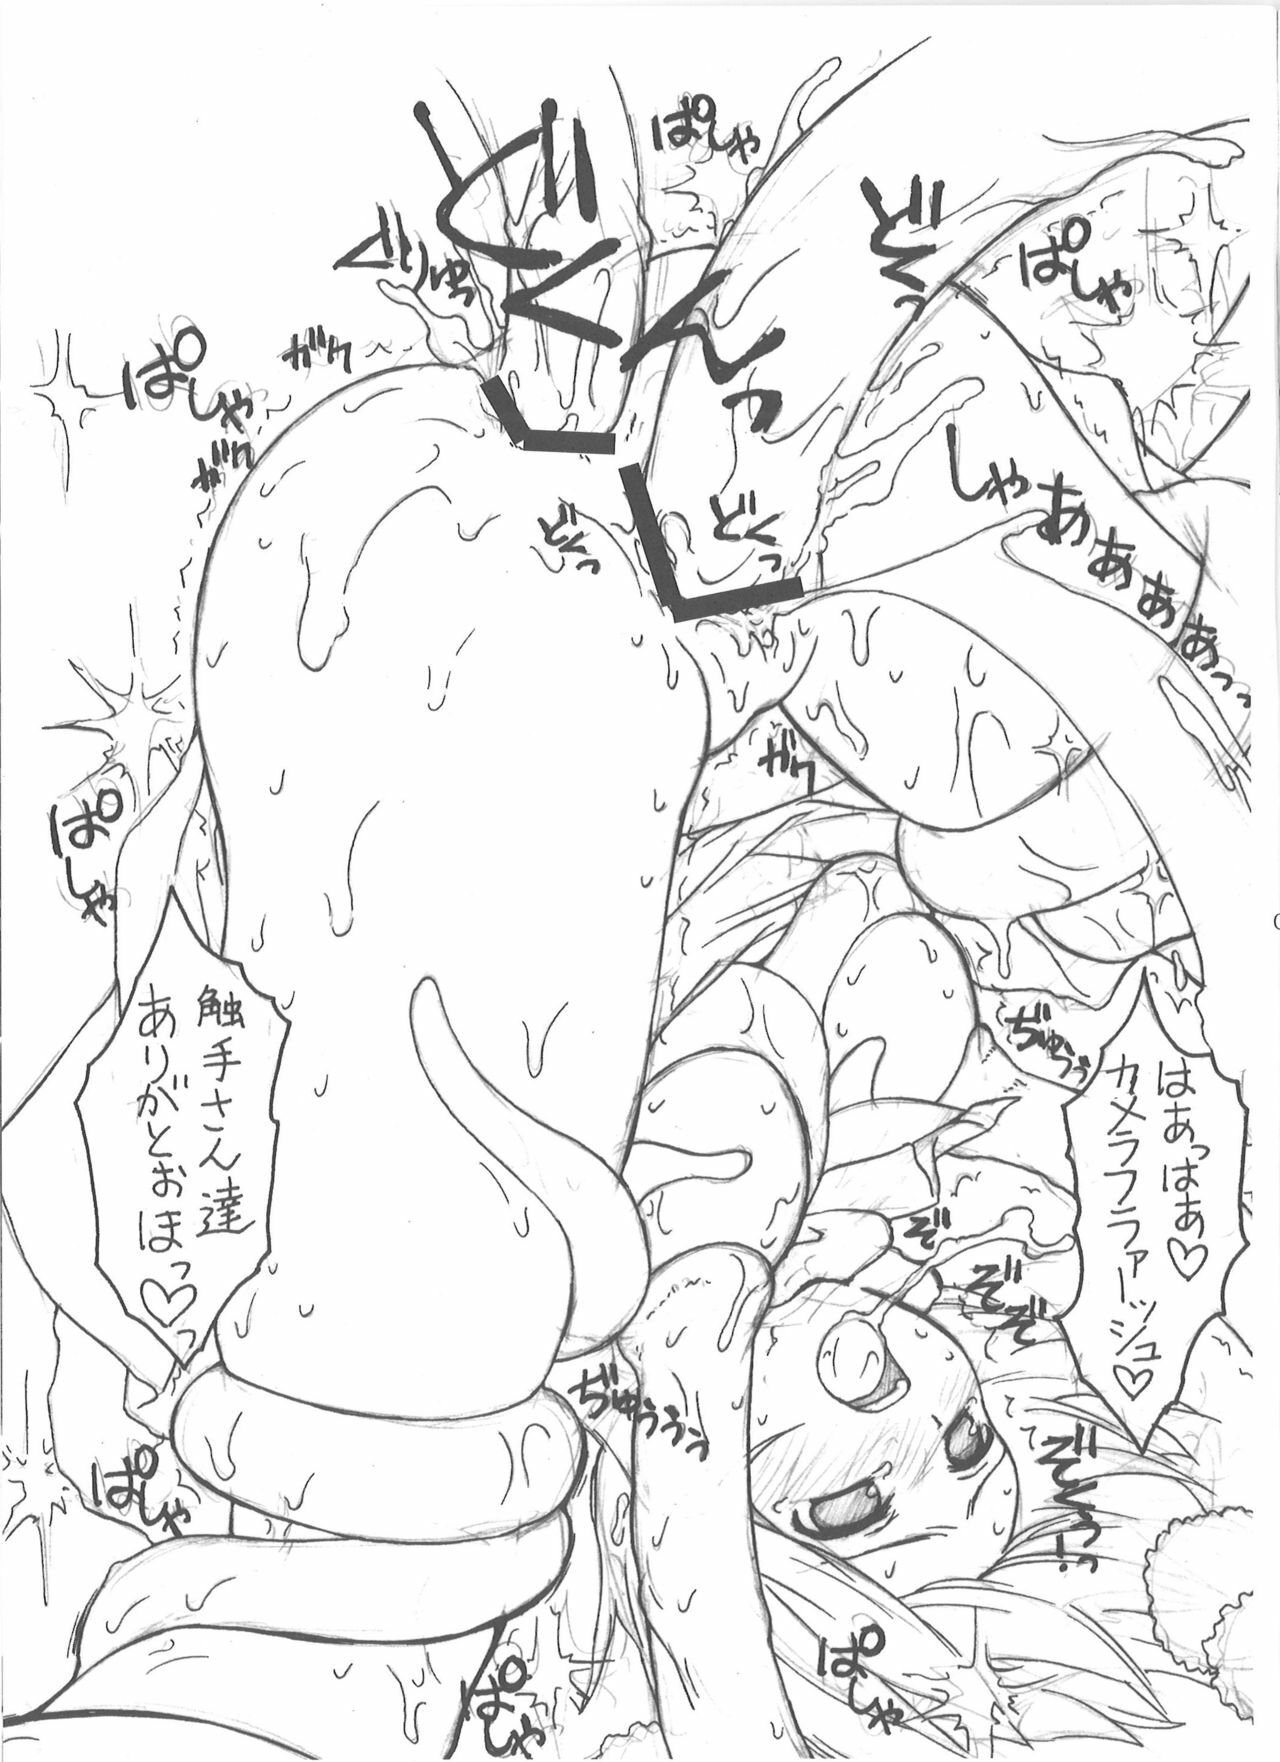 ぱしゃ
どくんっ
どくっ
ぱしゃ
ぐりゅっ
ガク
ぱしゃ
ガク
しゃあああああっっ
どくっ
どくっ
ガク
ぱしゃ
はあっはあ♡
カメラフラァーッシュ♡
ぢゅうぅ
触手さん達
ありがとおほっ♡っ
ぞぞ
ぞぞぞ
ぞくぅっ
ぢゅぅぅぅ
ぱしゃ
ぱしゃ
ぱしゃ